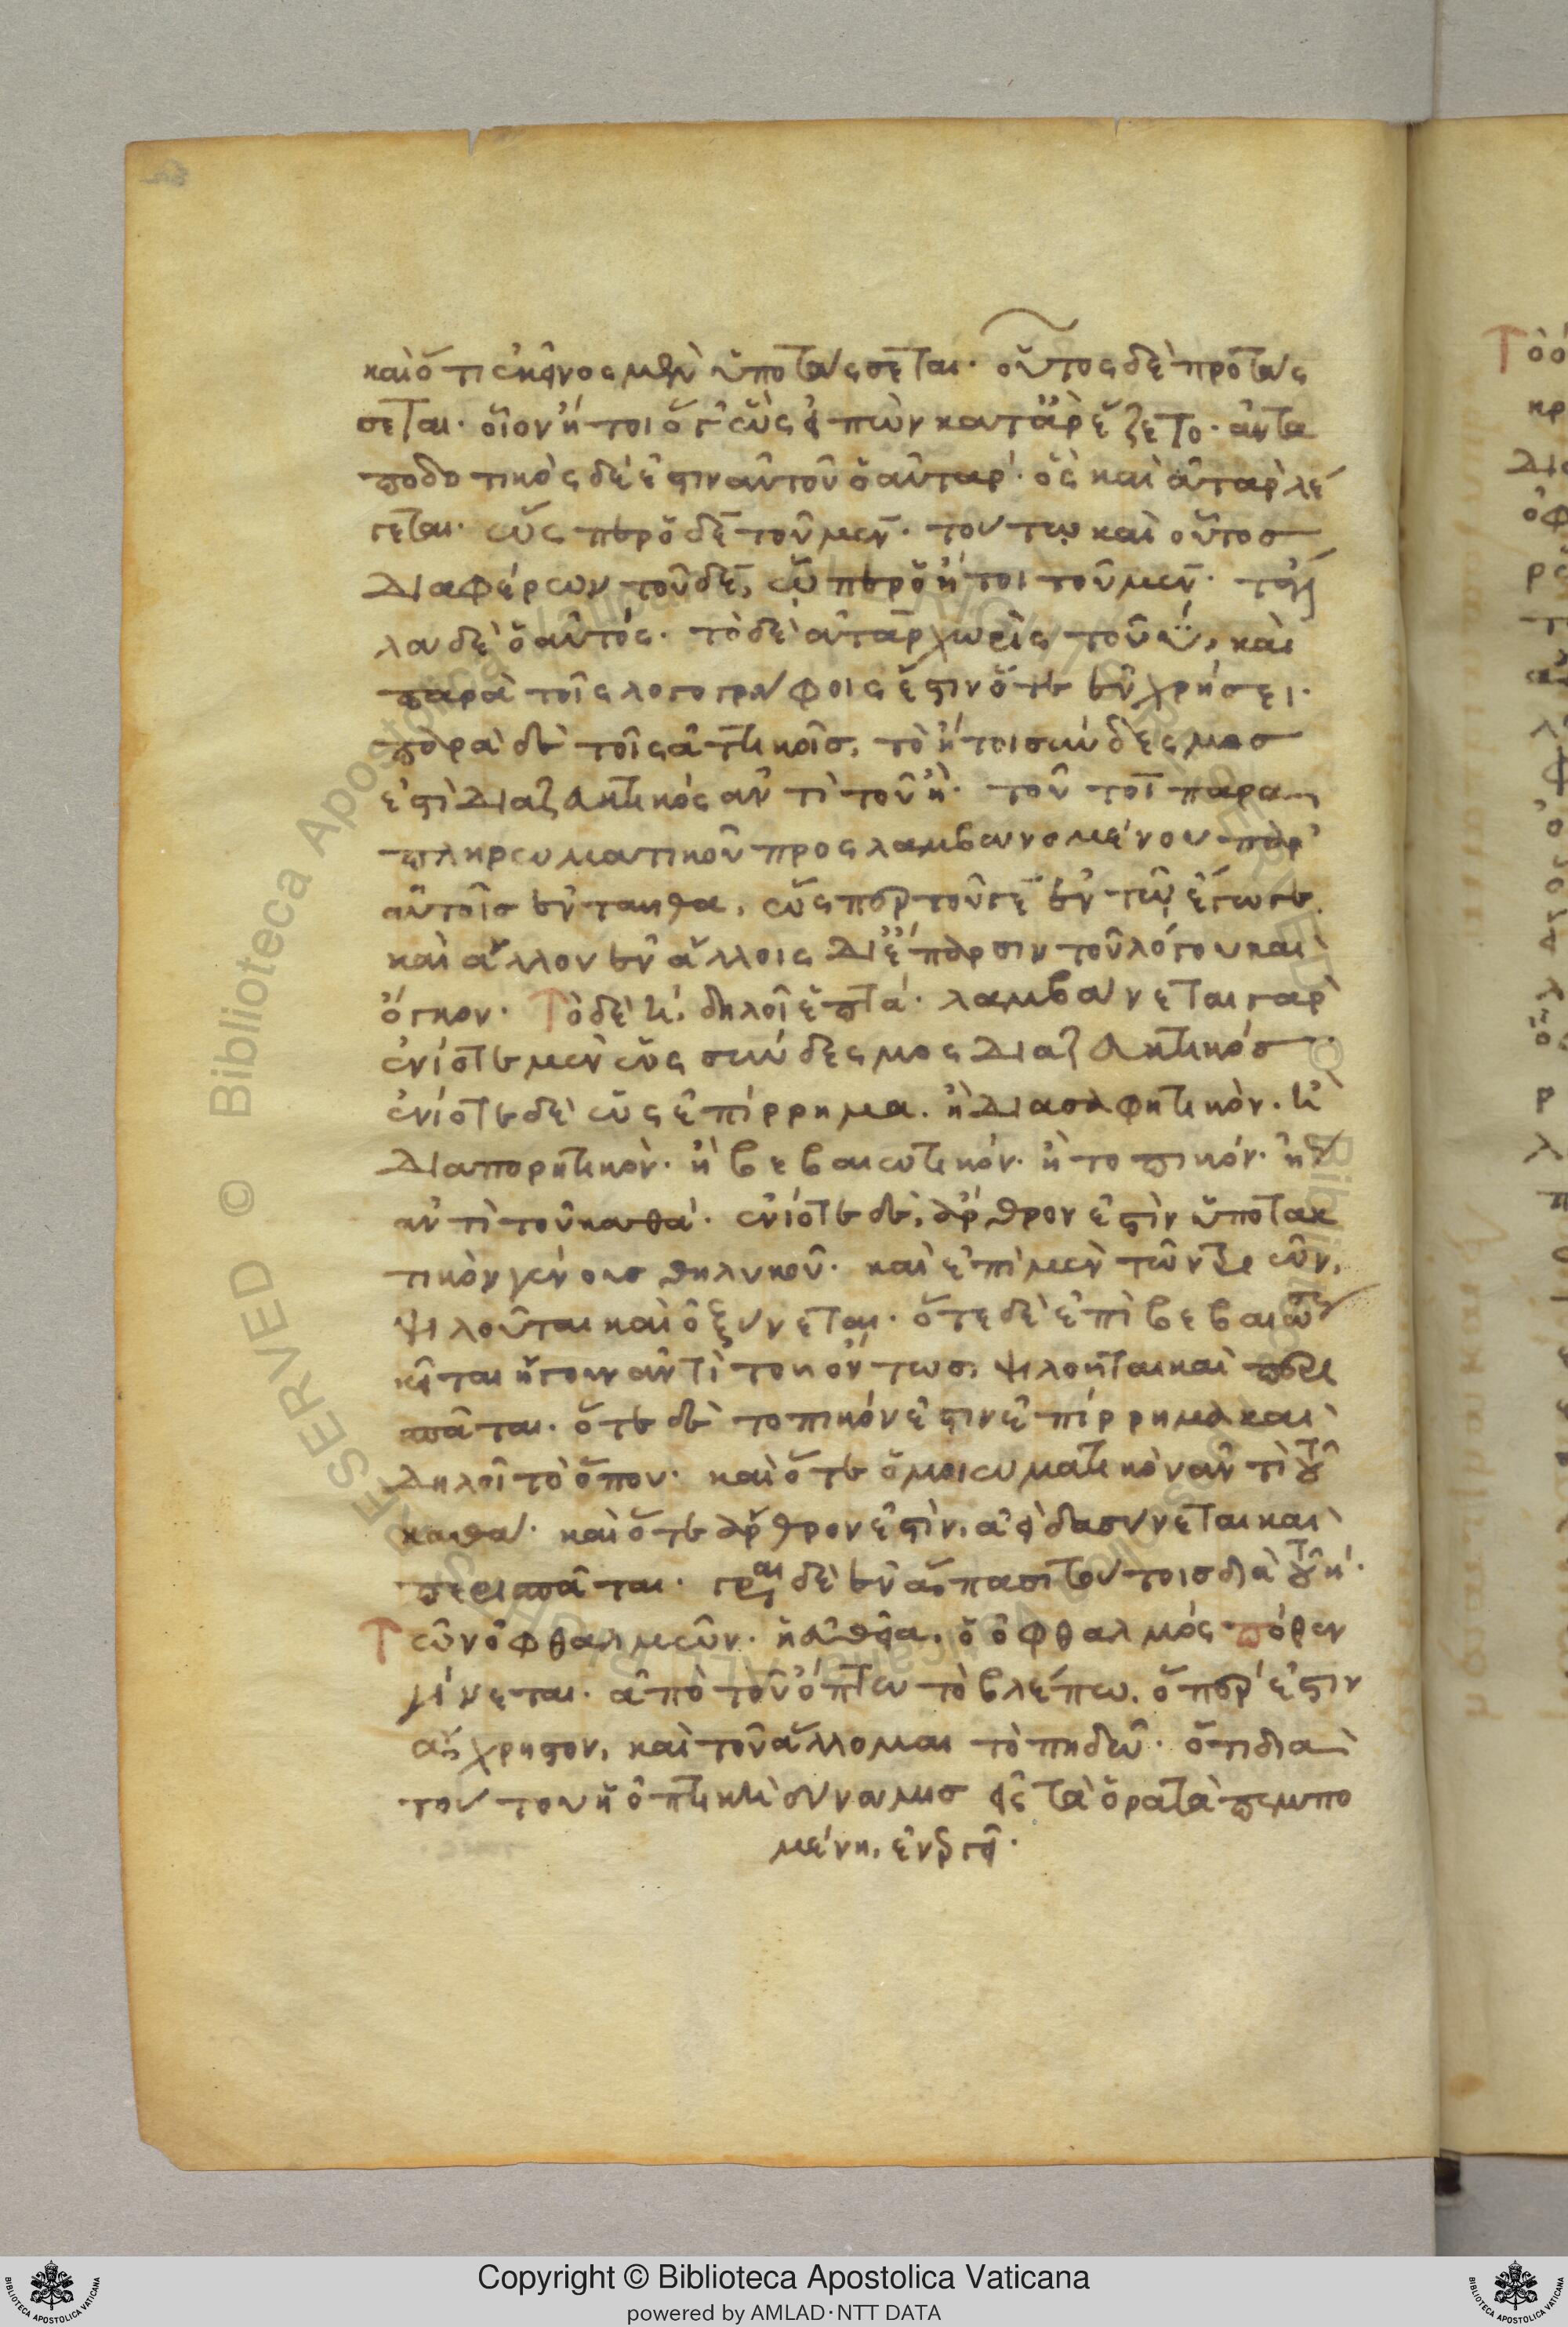 καὶ ὅτι ἐκεῖνος μὲν ὑποτάσσεται· οὗτος δὲ προτάς
σεται· οἷον ἤτοι ὅγ' ὣς εἰπὼν κατ' ἂρ ἕζετο· ἀντα
ποδοτικὸς δέ ἐστιν αὐτοῦ ὁ αὐτάρ· ὃς καὶ ἀτὰρ λέ
γεται· ὥσπερ ὁ δὲ τοῦ μὲν· τούτω καὶ οὗτος
διαφέρων τοῦ δὲ, ὧπερ ὁ ἤτοι τοῦ μὲν· τἆλ
λα δὲ ὁ αὐτός· τὸ δὲ ἀτὰρ χωρὶς τοῦ ϋ, καὶ
παρὰ τοῖς λογογράφοις ἐστιν ὅτε ἐν χρήσει·
παρὰ δὲ τοῖς ἀττικοῖς, τὸ ἤτοι σύνδεσμος
ἐστὶ διαζευκτικὸς ἀντὶ τοῦ ἢ· τοῦ τοι παρα
πληρωματικοῦ προσλαμβανομένου παρ'
αὐτοῖς ἐνταῦθα, ὥσπερ τοῦ γε ἐν τῷ ἔγωγε
καὶ ἄλλου ἐν ἄλλοις δι' ἔπαρσιν τοῦ λόγου καὶ
ὄγκον· Τὸ δὲ ἢ, δηλοῖ ἑπτά· λαμβάνεται γὰρ
ἐνίοτε μὲν ὡς σύνδεσμος διαζευκτικός·
ἐνίοτε δὲ ὡς ἐπίρρημα. ἢ διασαφητικὸν. ἢ
διαπορητικὸν· ἢ βεβαιωτικόν· ἢ τοπικόν· ἢ
ἀντὶ τοῦ καθά· ἐνίοτε δὲ, ἄρθρον ἐστὶν ὑποτακ
τικὸν γένους θηλυκοῦ· καὶ ἐπὶ μὲν τῶν τριῶν,
ψιλοῦται καὶ ὀξύνεται· ὅτε δὲ ἐπὶ βεβαιώσεως
κεῖται ἤγουν ἀντὶ τοῦ ὄντως, ψιλοῦται καὶ περι
σπᾶται· ὅτε δὲ τοπικόν ἐστιν ἐπίρρημα καὶ
δηλοῖ τὸ ὅπου· καὶ ὅτε ὁμοιωματικὸν ἀντὶ τοῦ
καθά· καὶ ὅτε ἄρθρον ἐστὶν, ἀεὶ δασύνεται καὶ
περισπᾶται· γράφεται δὲ ἐν ἅπασι τούτοις διὰ τοῦ η·
Τῶν ὀφθαλμῶν· ἡ εὐθεῖα, ὁ ὀφθαλμός· πόθεν
γίνεται· ἀπὸ τοῦ ὄπτω τὸ βλέπω, ὅπερ ἐστιν
ἄχρηστον, καὶ τοῦ ἅλλομαι τὸ πηδῶ· ὅτι διὰ
τούτου ἡ ὀπτικὴ δύναμις εἰς τὰ ὁρατὰ πεμπο
μένη, ἐνεργεῖ·
Copyright © Biblioteca Apostolica Vaticana
powered by AMLAD·NTT DATA